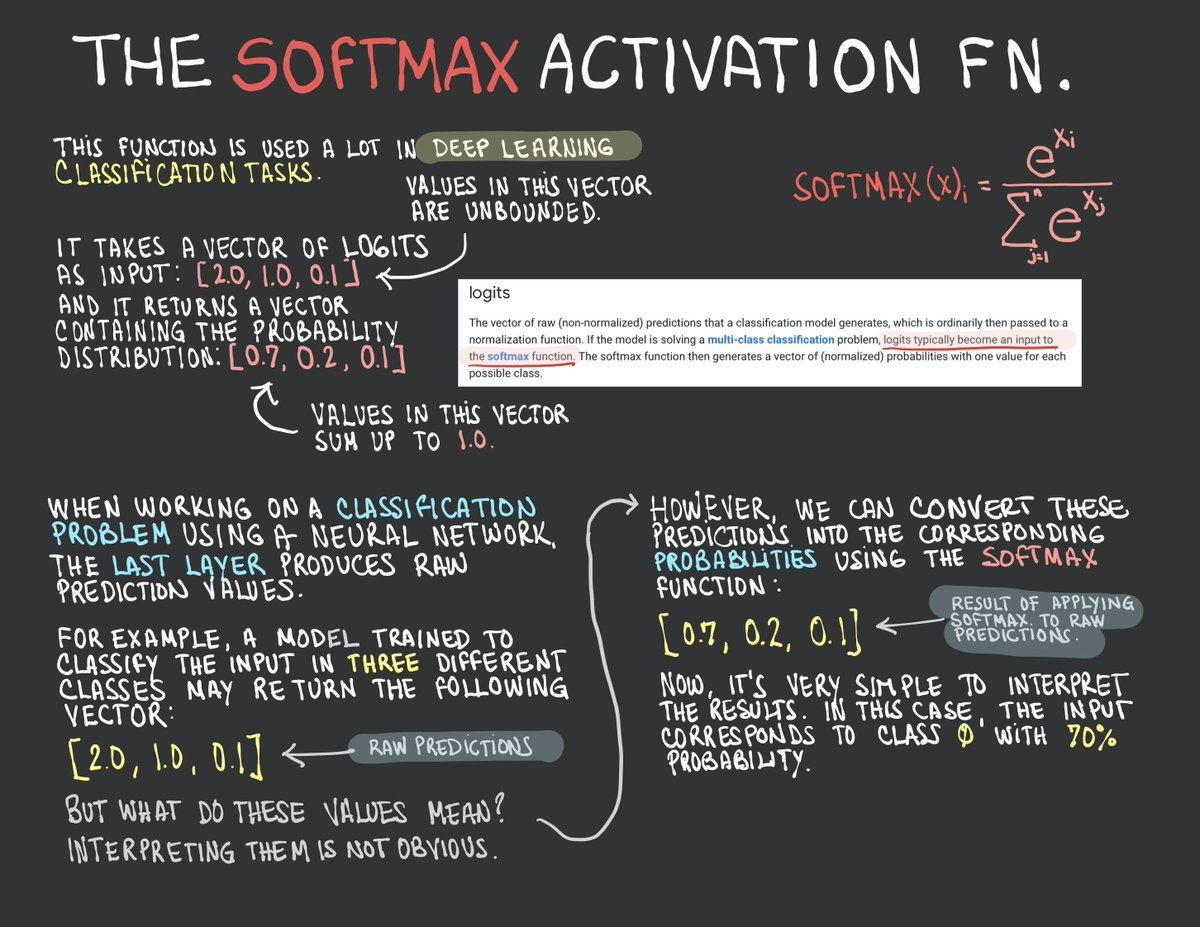 THE SOFTMAX ACTIVATION FN.
THIS FUNCTION IS USED A LOT IN DEEP LEARNING
CLASSIFICATION TASKS.
VALUES IN THIS VECTOR
ARE UNBOUNDED.
IT TAKES A VECTOR OF LOGITS
AS INPUT: [2.0, 1.0, 0.1]
AND IT RETURNS A VECTOR
CONTAINING THE PROBABILITY
DISTRIBUTION: [0.7, 0.2, 0.1]
VALUES IN THIS VECTOR
SUM UP TO 1.0.
SOFTMAX(x)i = e^xi / ∑ j=1 n e^xj
logits
The vector of raw (non-normalized) predictions that a classification model generates, which is ordinarily then passed to a
normalization function. If the model is solving a multi-class classification problem, logits typically become an input to
the softmax function. The softmax function then generates a vector of (normalized) probabilities with one value for each
possible class.
WHEN WORKING ON A CLASSIFICATION
PROBLEM USING A NEURAL NETWORK,
THE LAST LAYER PRODUCES RAW
PREDICTION VALUES.
FOR EXAMPLE, A MODEL TRAINED TO
CLASSIFY THE INPUT IN THREE DIFFERENT
CLASSES MAY RETURN THE FOLLOWING
VECTOR:
[2.0, 1.0, 0.1]
RAW PREDICTIONS
BUT WHAT DO THESE VALUES MEAN?
INTERPRETING THEM IS NOT OBVIOUS.
HOWEVER, WE CAN CONVERT THESE
PREDICTIONS INTO THE CORRESPONDING
PROBABILITIES USING THE SOFTMAX
FUNCTION:
[0.7, 0.2, 0.1]
RESULT OF APPLYING
SOFTMAX TO RAW
PREDICTIONS.
NOW, IT'S VERY SIMPLE TO INTERPRET
THE RESULTS. IN THIS CASE, THE INPUT
CORRESPONDS TO CLASS 0 WITH 70%
PROBABILITY.